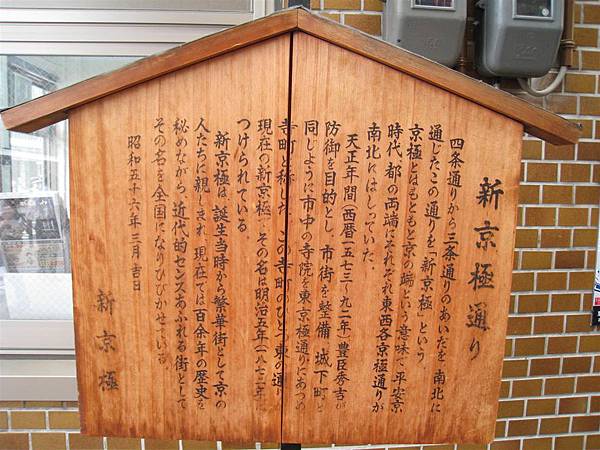 新京極通り
四条通りから三条通りのあいだを、南北に
通じたこの通りを「新京極」という。
京極とはもともと京の端という意味で平安京
時代、都の両端にそれぞれ東西各京極通りが
南北にはしっていた。
天正年間(西暦一五七三-九二年)豊臣秀吉が
防御を目的とし、市街を整備、城下町と
同じように市中の寺院を東京極通りにあつめ
寺町と称した。この寺町のひとつ東の通り
現在の新京極。その名は明治五年(一八七二年)に
つけられている。
新京極は、誕生当時から繁華街として京の
人たちに親しまれ、現在では百余年の歴史を
秘めながら、近代的センスあふれる街として
その名を全国になりひびかせている。
昭和五十六年三月吉日
新京極